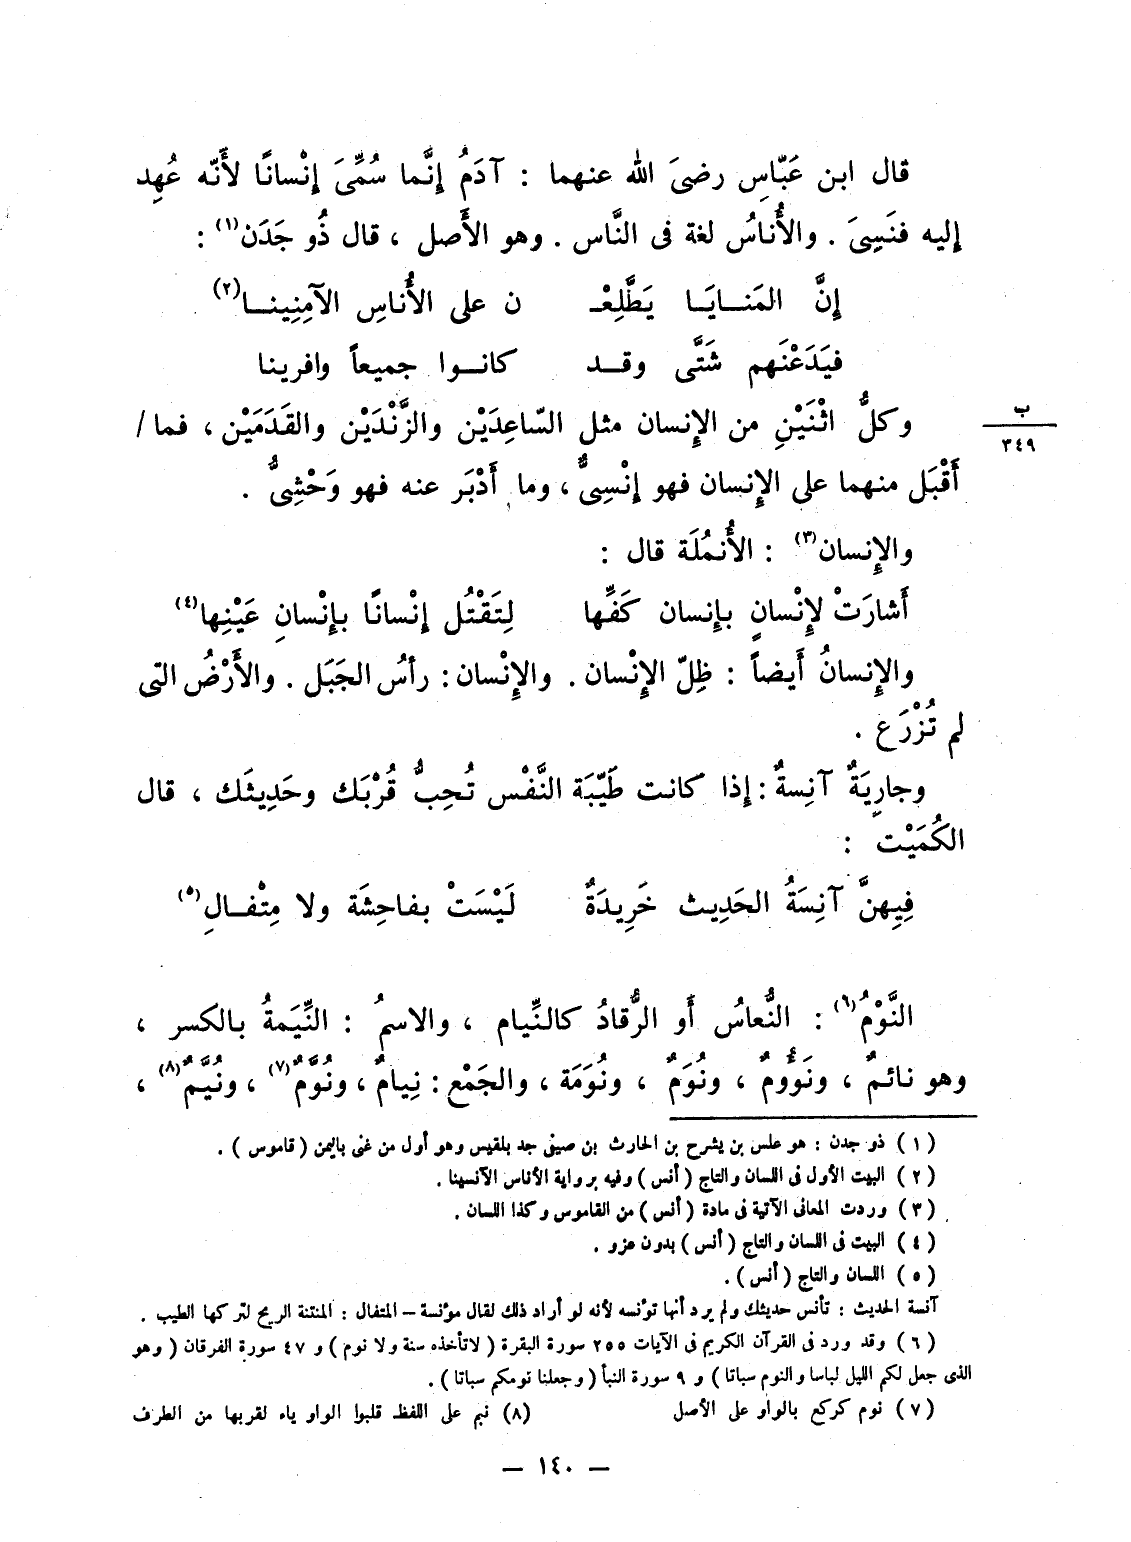 قال ابن عَبّاسٍ رضىَ الله عنهما : آدَمُ إنَّما سُمِّىَ إنْسانًا لأَنّه عُهِد
إليه فنَسِىَ . والأُناسُ لغة فى النَّاس . وهو الأَصل ، قال ذُو جَدَن(١) :
إنَّ المَنــايَــا يَطَّلِعْـ ن على الأُناسِ الآمِنِينــا(٢)
فيَدَعْنَهم شَتَّى وقــد كانــوا جميعاً وافرينا
وكلُّ اثْنَيْنِ من الإنسان مثل السّاعِدَيْن والزَّنْدَيْن والقَدَمَيْن ، فما /
ب
٣٤٩
أَقْبَل منهما على الإِنسان فهو إنْسِىٌّ ، وما أَدْبَر عنه فهو وَحْشِىٌّ .
والإِنسان(٣) : الأُنمُلَة قال :
أَشارَتْ لإنْسانٍ بإنسان كَفِّها لِتَقْتُل إنْسانًا بإنْسانِ عَيْنِها(٤)
والإنسانُ أَيضاً : ظِلّ الإنْسان . والإنْسان : رأسُ الجَبَل . والأَرْضُ التى
لم تُزْرَع .
وجارِيَةٌ آنِسةٌ : إذا كانت طَيّبَة النَّفْس تُحِبُّ قُرْبَك وحَدِيثَك ، قال
الكُمَيْت :
فِيهنَّ آنِسَةُ الحَدِيث خَرِيدَةٌ لَيْسَتْ بفاحِشَة ولا مِتْفــالِ(٥)
النَّوْمُ(٦) : النُّعاسُ أَو الرُّقادُ كالنِّيام ، والاسمُ : النِّيَمةُ بالكسر ،
وهو نائمٌ ، ونَؤُومٌ ، ونُوَمٌ ، ونُوَمَة ، والجَمْع : نِيامٌ ، ونُوَّمٌ(٧) ، ونُيَّمٌ(٨) ،
(١) ذو جدن : هو علس بن يشرح بن الحارث بن صيفى جد بلقيس وهو أول من غنى باليمن ( قاموس ) .
(٢) البيت الأول فى اللسان والتاج ( أنس ) وفيه برواية الأناس الآنسينا .
(٣) وردت المعانى الآتية فى مادة ( أنس ) من القاموس وكذا اللسان .
(٤) البيت فى اللسان والتاج ( أنس ) بدون عزو .
(٥) اللسان والتاج ( أنس ) .
آنسة الحديث : تأنس حديثك ولم يرد أنها تؤنسه لأنه لو أراد ذلك لقال مؤنسة – المتفال : المنتنة الريح لتركها الطيب .
(٦) وقد ورد فى القرآن الكريم فى الآيات ٢٥٥ سورة البقرة ( لا تأخذه سنة ولا نوم ) و ٤٧ سورة الفرقان ( وهو
الذى جعل لكم الليل لباسا والنوم سباتا ) و ٩ سورة النبأ ( وجعلنا نومكم سباتا ) .
(٧) نوم كركع بالواو على الأصل (٨) نيم على اللفظ قلبوا الواو ياء لقربها من الطرف
— ١٤٠ —